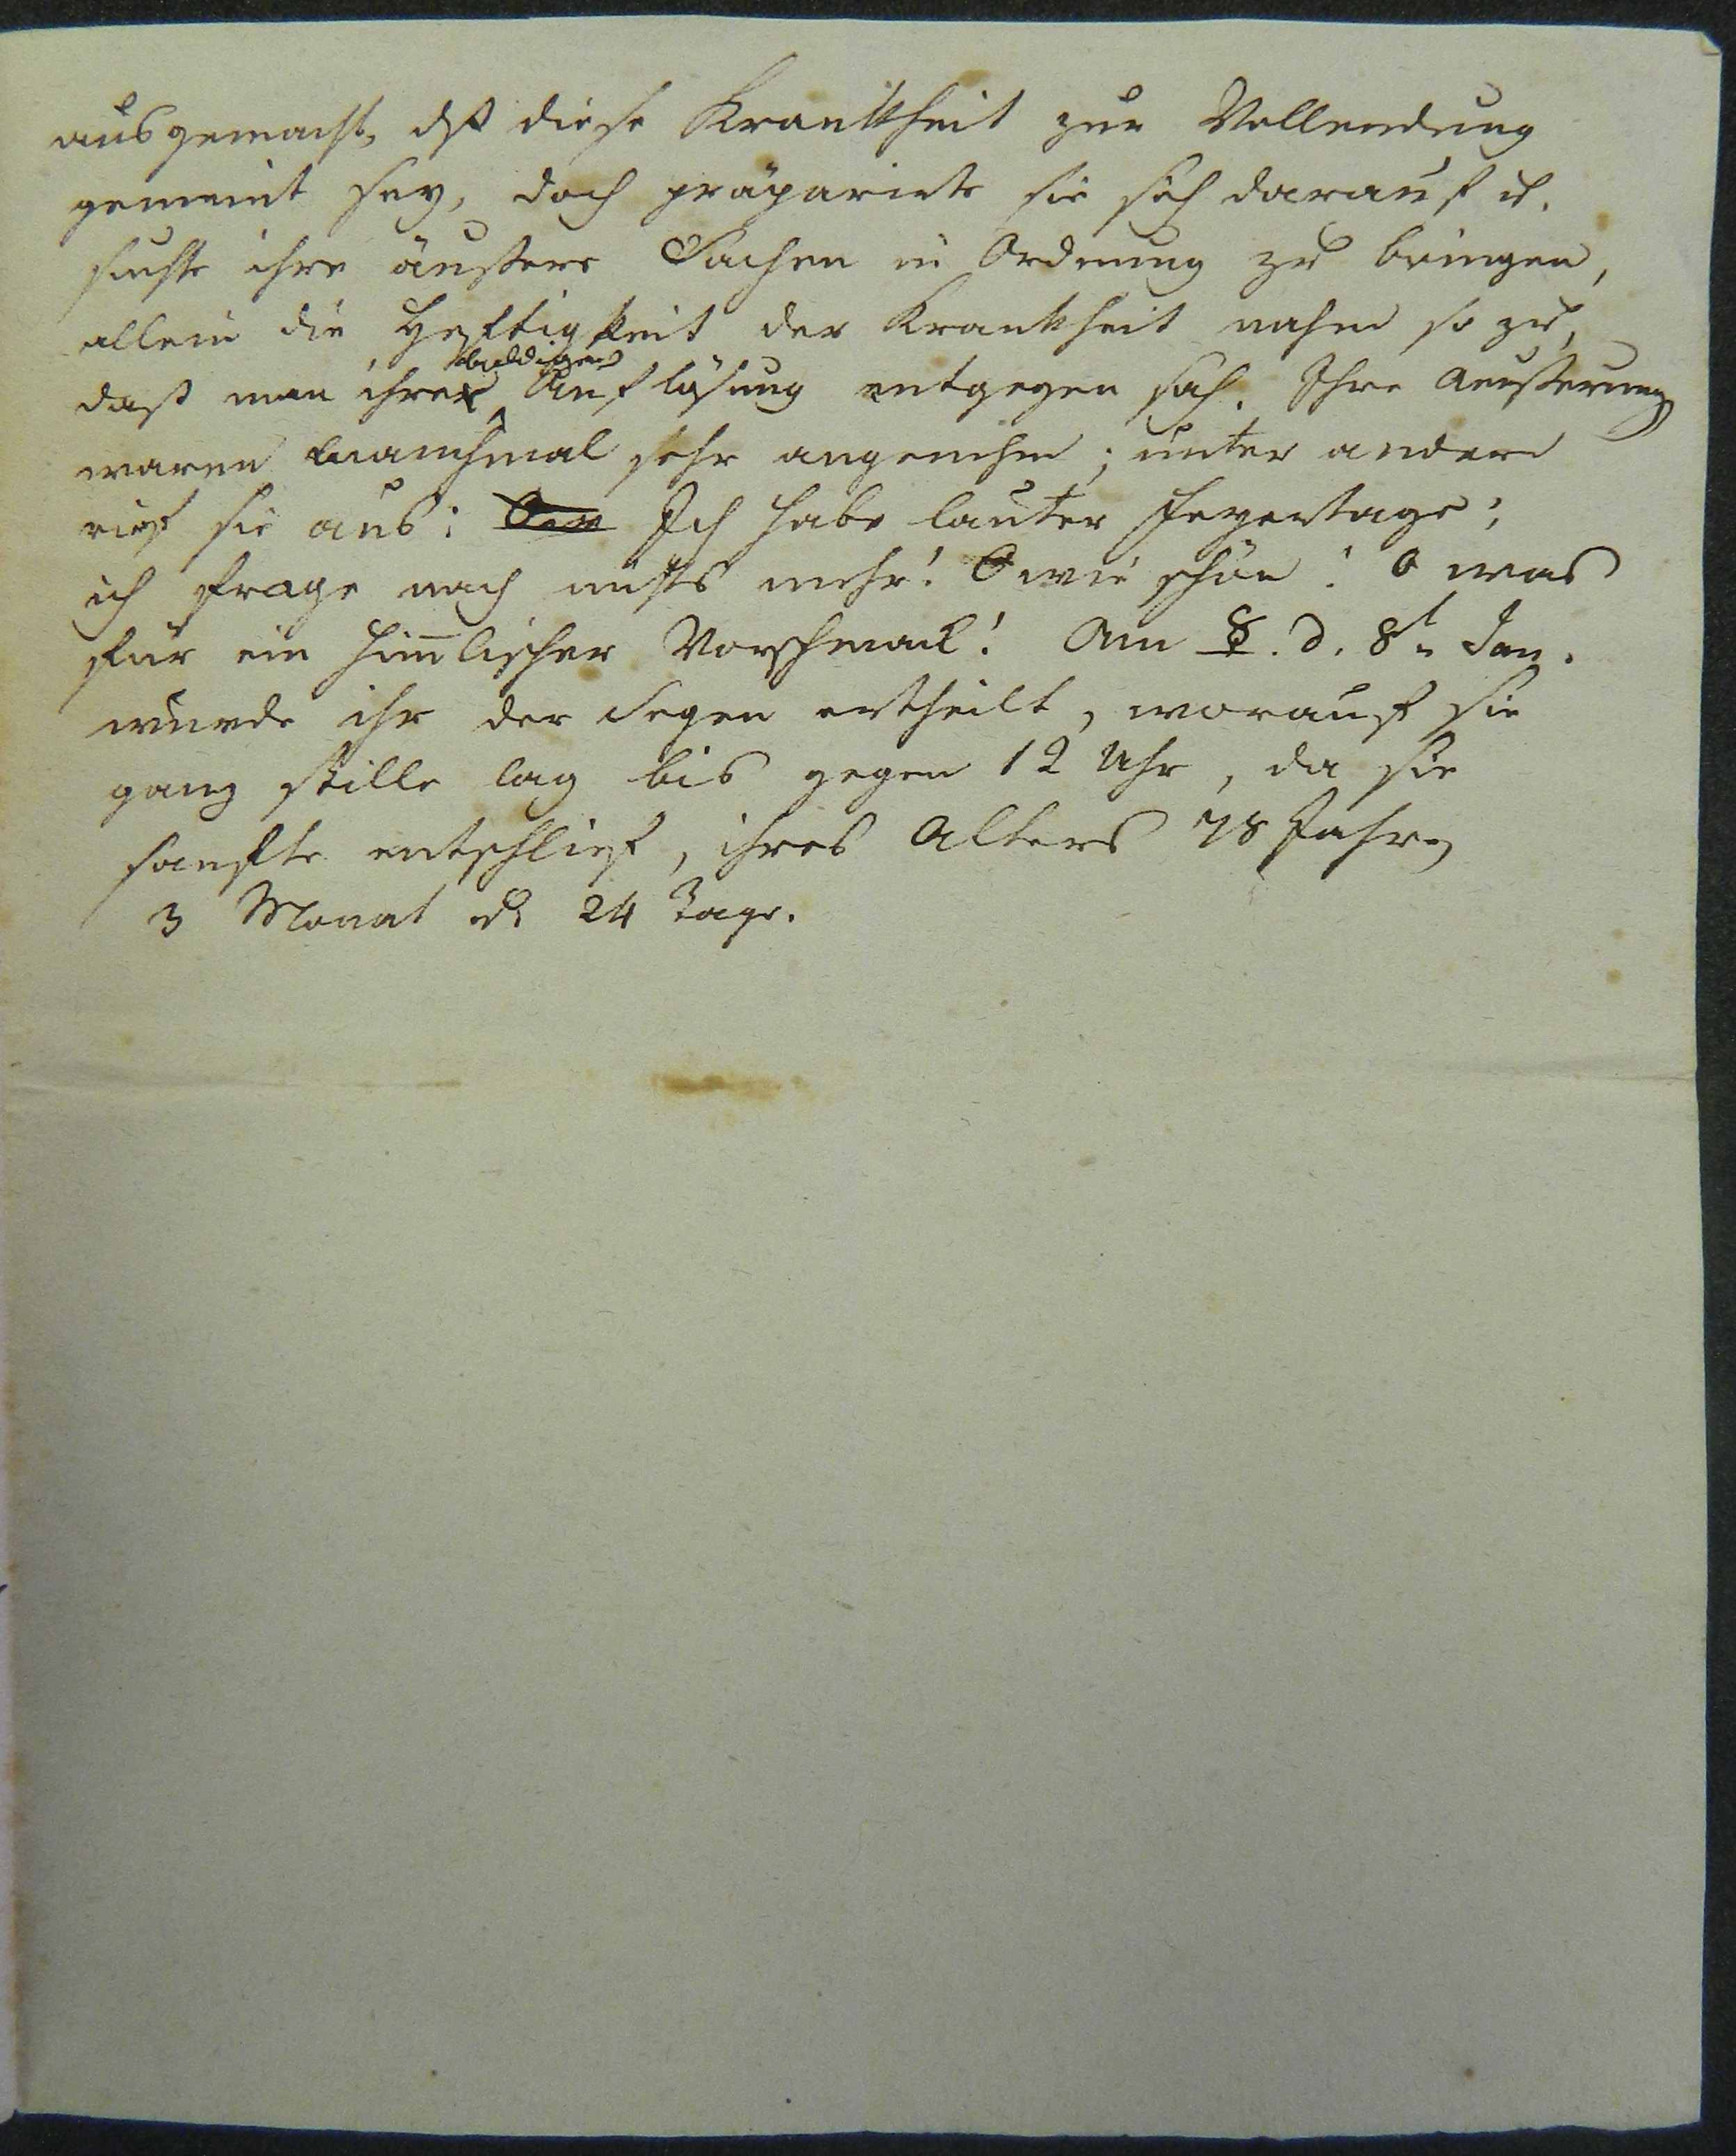 ausgemacht, dß diese Krankheit zur Vollendung
gemeint sey, doch präparirte sie sich darauf u.
suchte ihre äußere Sachen in Ordnung zu bringen,
allein die Heftigkeit der Krankheit nahm so zu,
daß man ihrer baldigen Auflösung entgegen sah. Ihre Aeußerung
waren manchmal sehr angenehm; unter andern
rief sie aus: Ich habe lauter Feyertage;
ich frage nach nichts mehr! O wie schön! O was
für ein him̅lischer Vorschmack! Am ☿. d. 8t. Jan.
wurde ihr der Segen ertheilt, worauf sie
ganz stille lag bis gegen 12 Uhr, da sie
sanfte entschlief, ihres Alters 78 Jahre,
3 Monat u. 24 Tage.